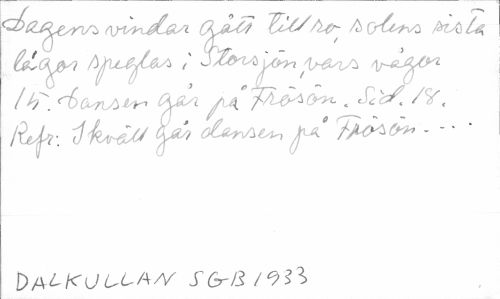 Dagens vindar gått till ro, solens sista
lågor speglas i Storsjön, vars vågor
15. Dansen går på Frösön. Sid. 18.
Refr: Ikväll går dansen på Frösön....
DALKULLAN SGB 1933